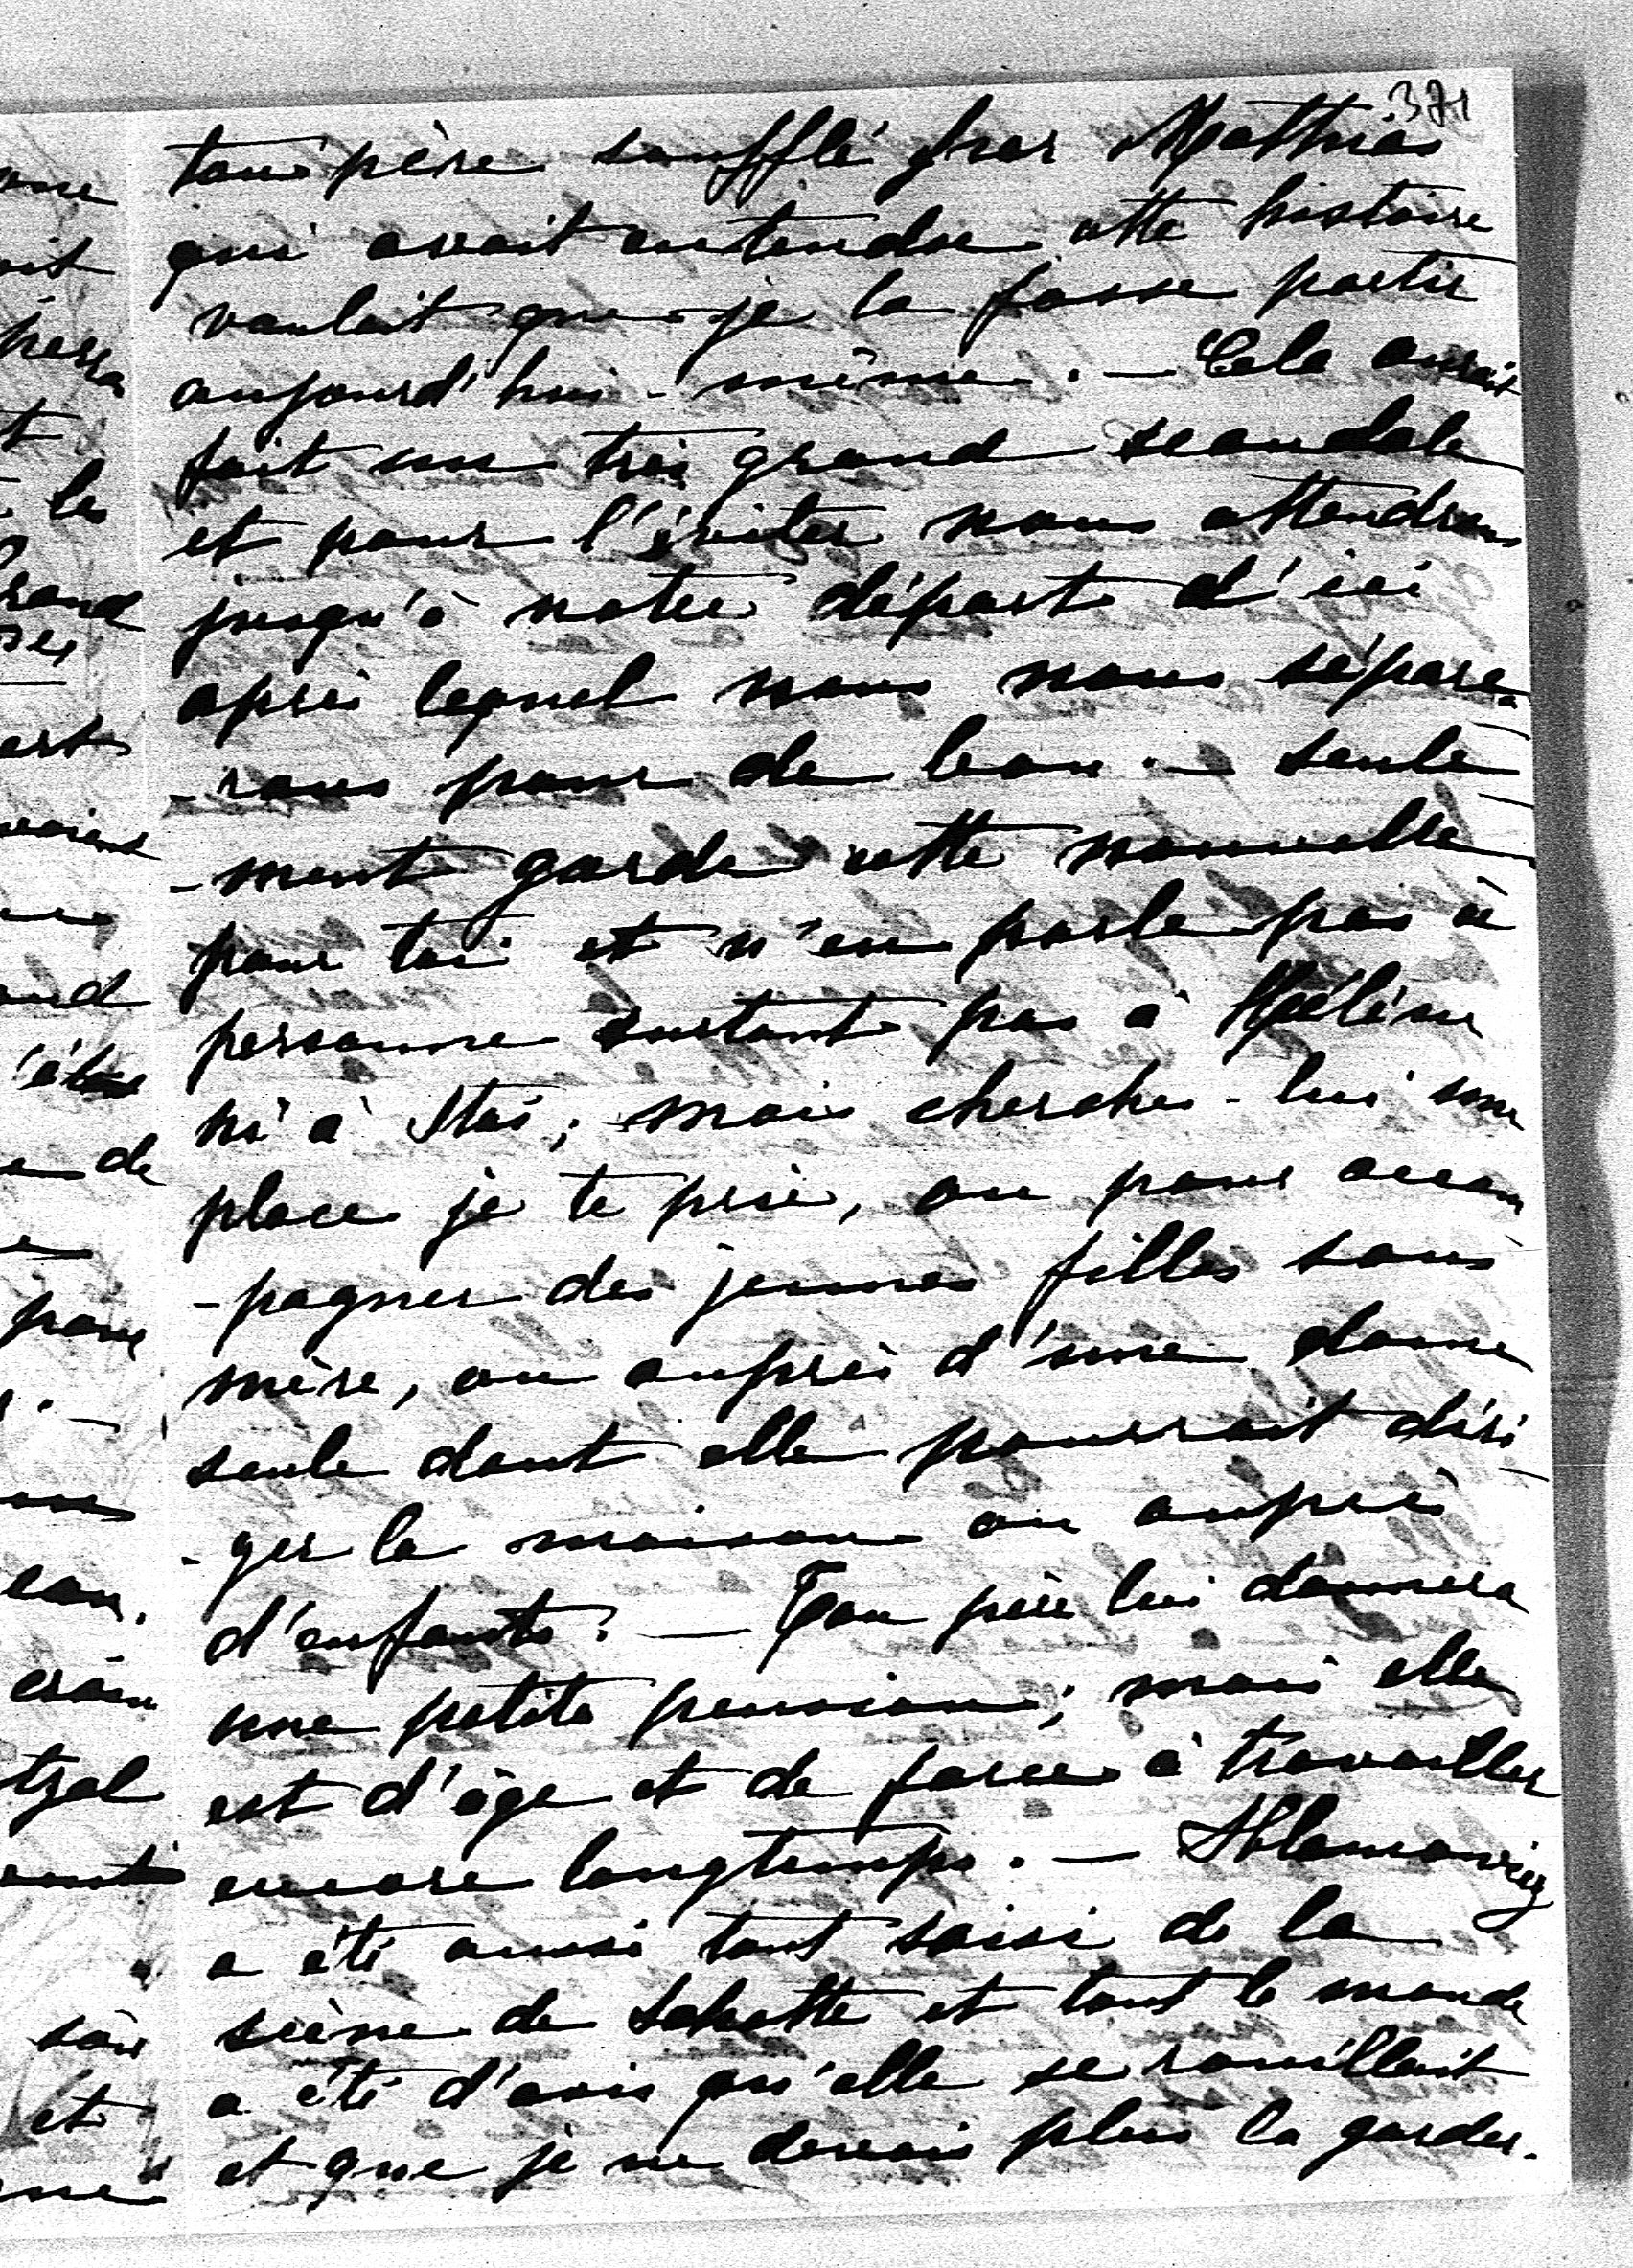 371
ton père soufflé par Mathias
qui avait entendu cette histoire
voulait que je la fasse partir
aujourd'hui-même. — Cela aurait
fait un très grand scandale
et pour l'éviter nous attendrons
jusqu'à notre départ d'ici
après lequel nous nous sépare-
-rons pour de bon. — Seule
-ment garde cette nouvelle
pour toi et n'en parle pas à
personne surtout pas à Hélène
ni à Stas; mais cherche-lui une
place je te prie, ou pour accom
-pagner des jeunes filles sans
mère, ou auprès d'une dame
seule dont elle pourrait diri
-ger la maison ou auprès
d'enfants. — Ton père lui donnera
une petite pension; mais elle
est d'âge et de force à travailler
encore longtemps. —
a été aussi tout saisi de la
scène de et tout le monde
a été d'avis qu'elle se rouillait
et que je ne devais plus la garder.